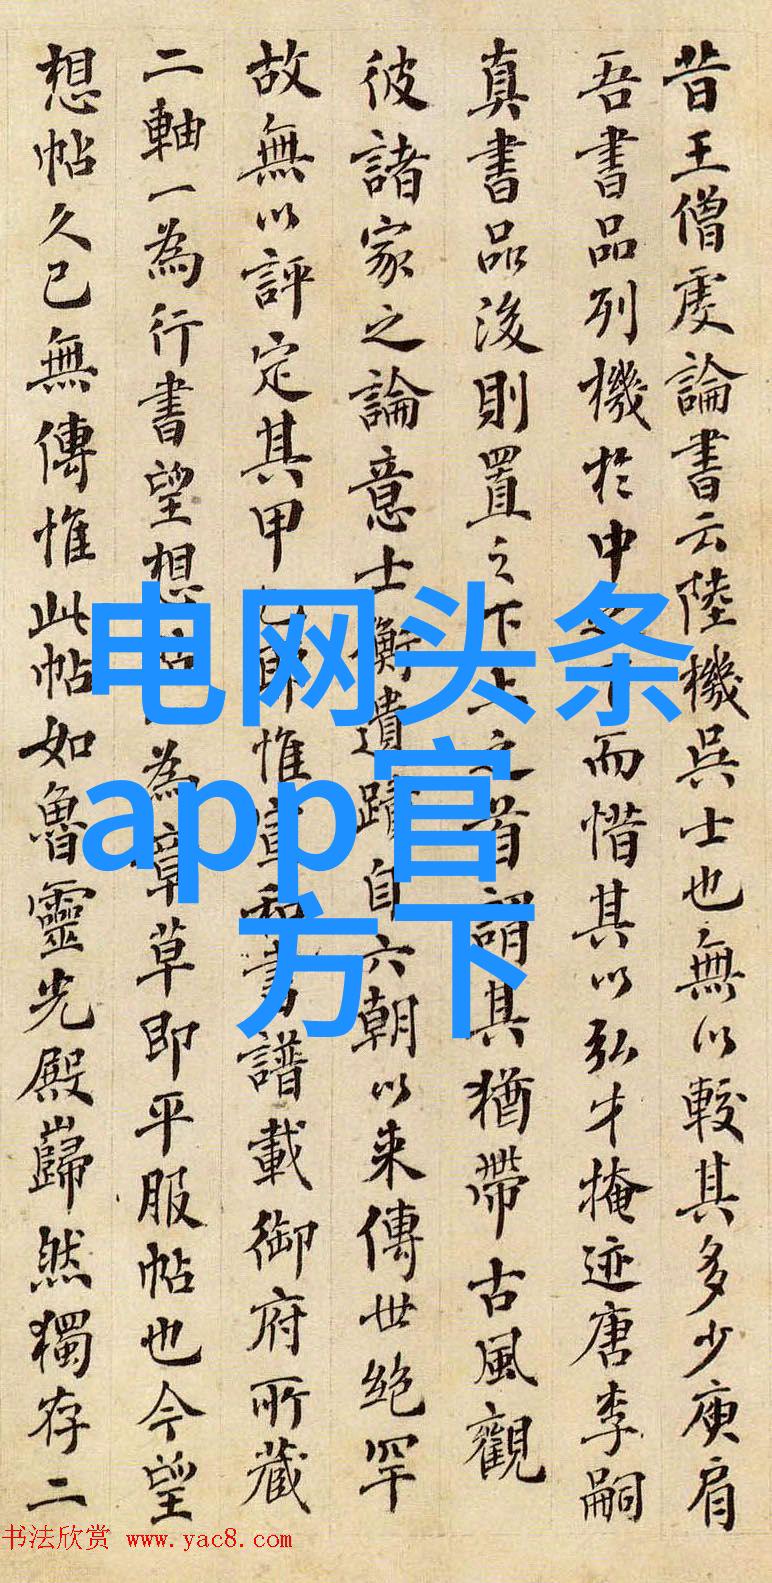 昔王僧虔論書云陸機吳士也無以較其多少庾肩
吾書品列機於中而惜其以弘才掩迹唐李嗣
真書品後則置之下上之首謂其猶帶古風觀
彼諸家之論意士衡遺蹟自六朝以来傳世絶罕
故無以評定其甲乙耶惟宣和書譜載御府所藏
二軸一為行書望想帖一為章草即平服帖也今望
想帖久已無傳惟此帖如魯靈光殿巋然獨存二
电网头条
app官
方下
书法欣赏 www.yac8.com